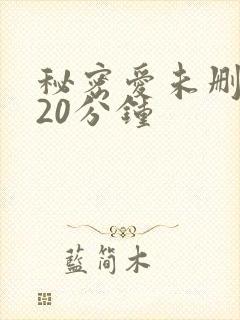 秘密愛未删
20分鐘
藍简木